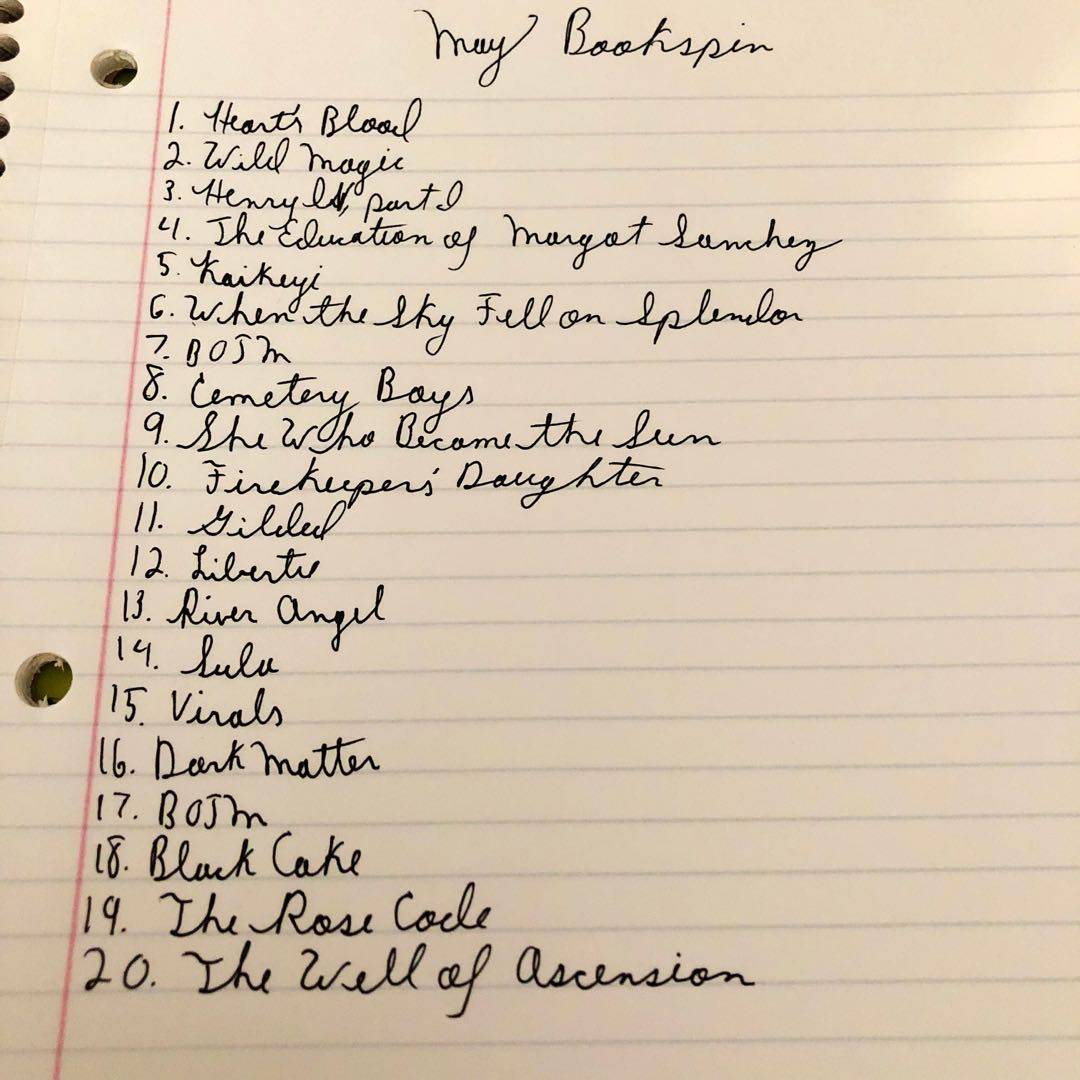 May Bookspin
1. Heart's Blood
2. Wild Magic
3. Henry IV, part I
4. The Education of Margot Sanchez
5. Kaikeyi
6. When the Sky Fell on Splendor
7. BOTM
8. Cemetery Boys
9. She Who Became the Sun
10. Firekeeper's Daughter
11. Gilded
12. Libertie
13. River Angel
14. Sula
15. Virals
16. Dark Matter
17. BOTM
18. Black Cake
19. The Rose Code
20. The Well of Ascension